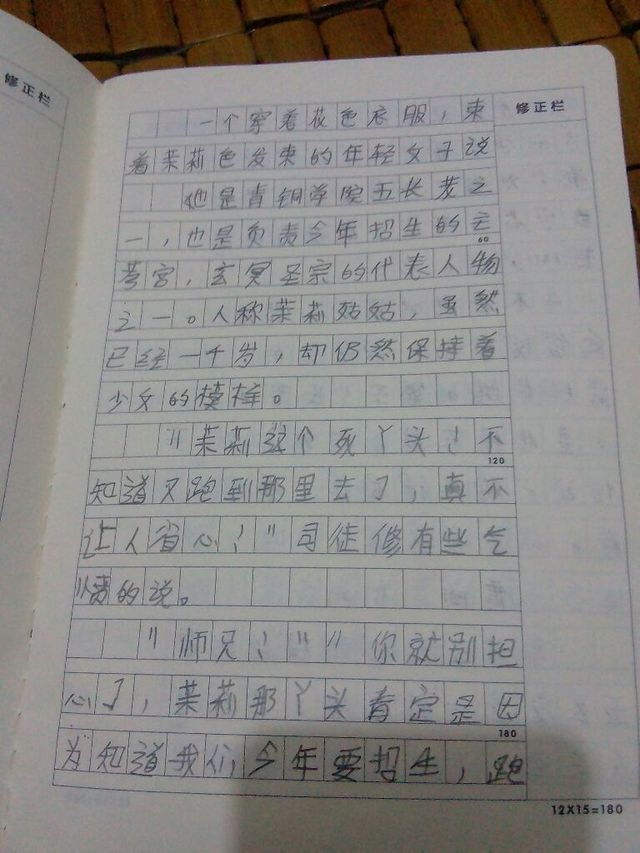 修正栏
修正栏
一个穿着花色衣服，束
着茉莉色发束的年轻女子说
他是青铜学院五长老之
一，也是负责今年招生的主
60
考官，玄冥圣宗的代表人物
之一。人称茉莉姑姑，虽然
已经一千岁，却仍然保持着
少女的模样。
"茉莉这个死丫头！不
120
知道又跑到那里去了，真不
让人省心！"司徒修有些气
愤的说。
"师兄！""你就别担
心了，茉莉那丫头肯定是因
180
为知道我们今年要招生，跑
12X15=180